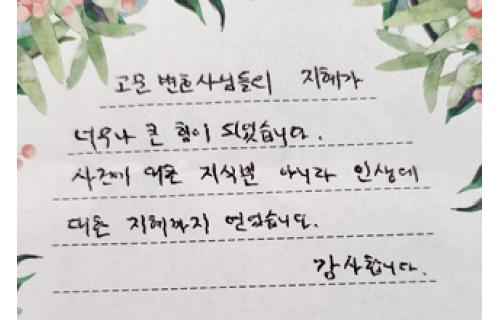 고문 변호사님들의 지혜가
너무나 큰 힘이 되었습니다.
사건에 대한 지식뿐 아니라 인생에
대한 지혜까지 얻었습니다.
감사합니다.